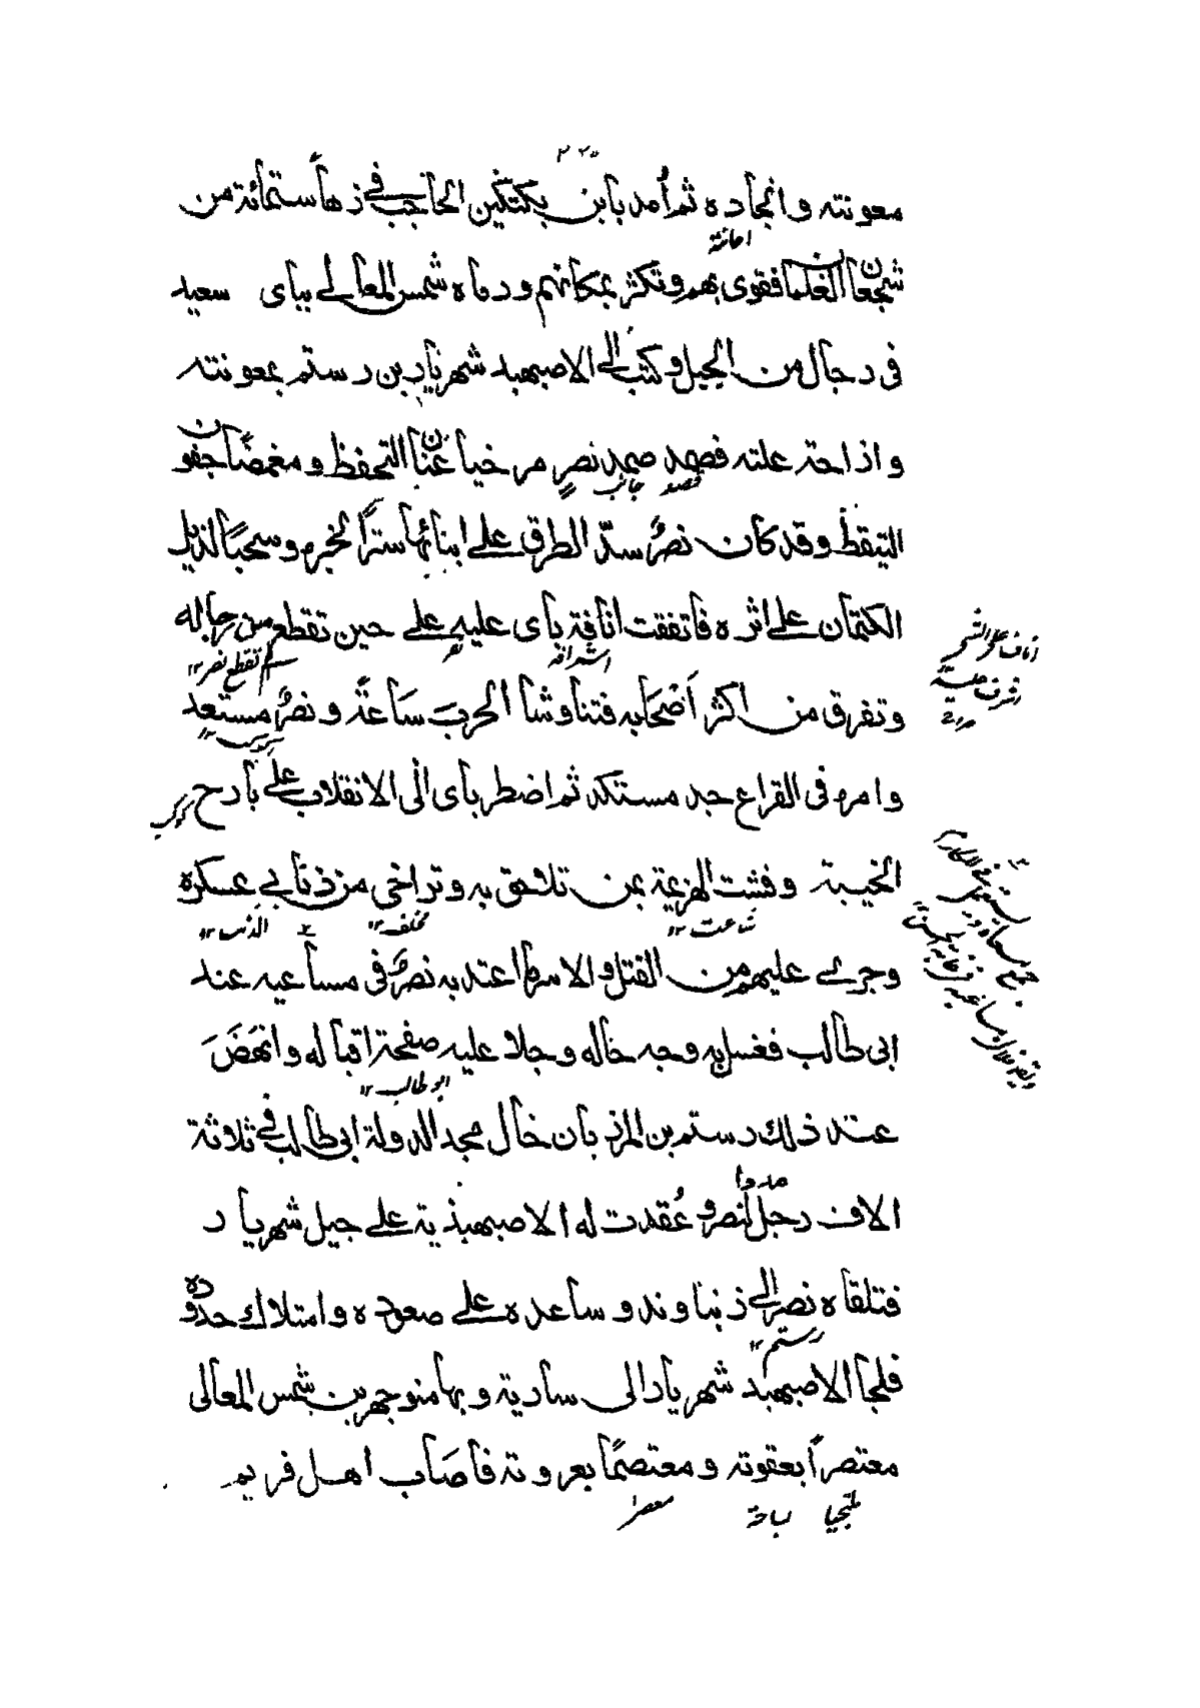 ٢٢٥
معونته وانجاده ثم أمد بابن بكتكين الحاجب في زهاء ستمائة من
اعانة
شجعان الغلمان فقوى بهم وتكثر بمكانهم ورماه شمس المعالي بباى سعيد
فى رجال من الجيل وكتب الى الاصبهبد شهريار بن رستم بمعونته
وازاحة علته فصمد صمد نصر مرخيا عنان التحفظ ومغمضا جفون
قصد جانب
التيقظ وقد كان نصرٌ سدّ الطرق على ابنائها ستراً لخبره وسحبًا لذيل
الكتمان على اثره فاتفقت انافة باى عليه على حين تقطع من رجاله
اشرافه نصر تقطع نصر ١٢
وتفرق من اكثر أضحابه فتناوشا الحرب سَاعَةً ونصرٌ مستعد
وامره فى القراع جد مستكد ثم اضطر باى الى الانقلاب على بارح
الخيبة وفشت الهزيمة بمن تلاحق به وتراخى من ذنابى عسكره
شاعت ١٢ تخلف ١٢ الذنب ١٢
وجرى عليهم من القتل والاسر ما اعتد به نصرٌ فى مساعيه عند
ابى طالب فغسل به وجه خاله وجلا عليه صفحة اقباله وانهَضَ
ابو طالب ١٢
عند ذلك رستم بن المرزبان خال مجد الدولة ابى طالب فى ثلاثة
مددا
الاف رجل لنصر وعُقدت له الاصبهبذية على جبل شهريار
فتلقاه نصر الى ذنباوند وساعده على صعوده وامتلاك حدوده
رستم ١٢
فلجا الاصبهبد شهريار الى سارية وبها منوجهر بن شمس المعالى
معتصراً بعقوته ومعتصمًا بعروته فاصاب اهل فريم
ملتجيا ساحة
اناف على الشىء
اشرف عليه